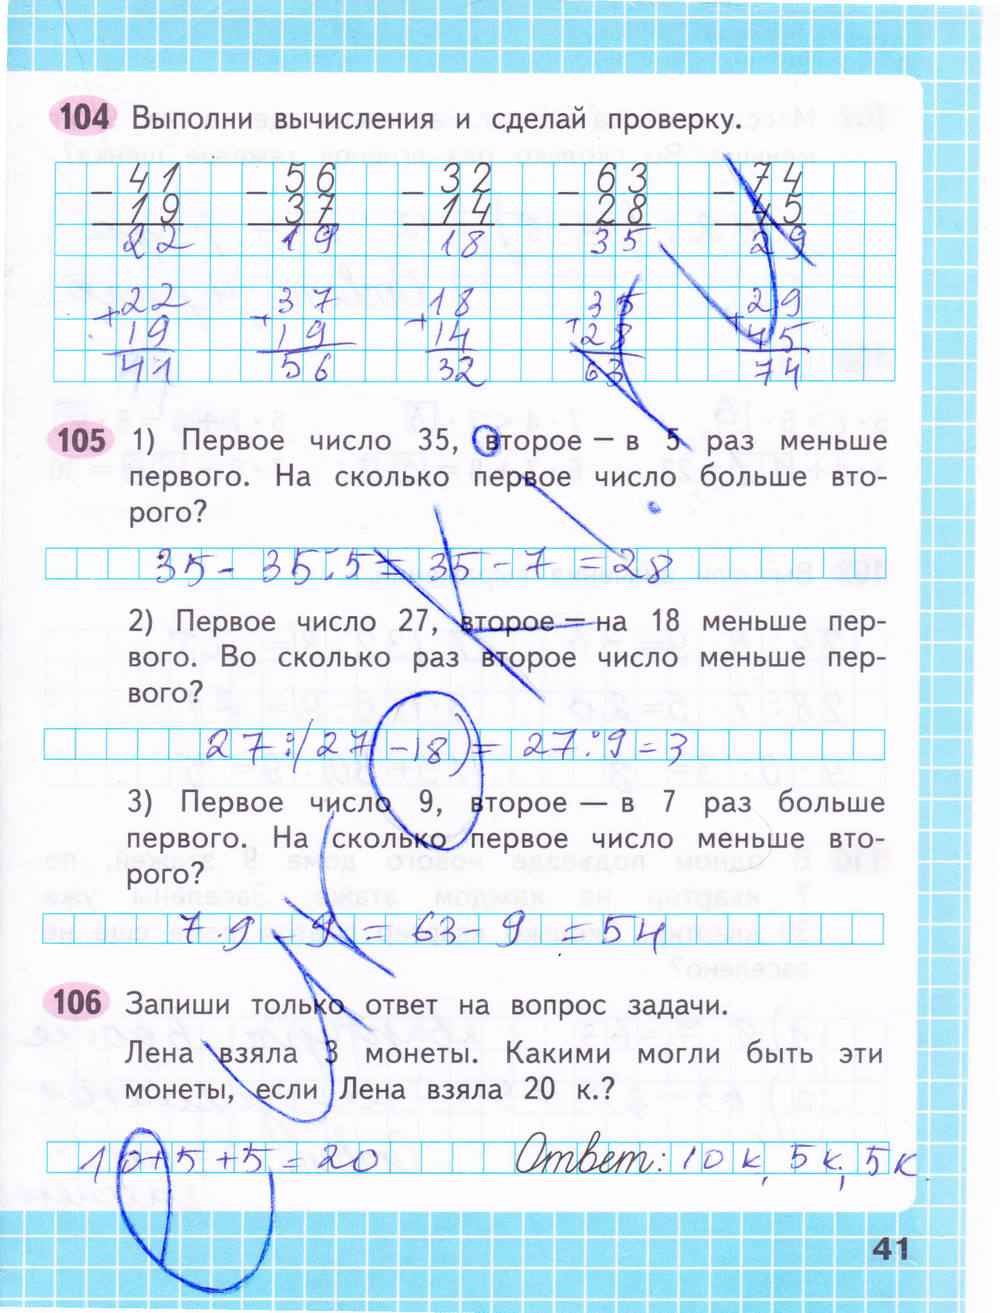 104 Выполни вычисления и сделай проверку.
− 41 − 56 − 32 − 63 − 74
19 37 14 28 45
22 19 18 35 29
22 37 18 35 29
+ 19 + 19 + 14 + 28 + 45
41 56 32 63 74
105 1) Первое число 35, второе – в 5 раз меньше
первого. На сколько первое число больше вто-
рого?
35 - 35:5 = 35 - 7 = 28
2) Первое число 27, второе – на 18 меньше пер-
вого. Во сколько раз второе число меньше пер-
вого?
27:(27-18) = 27:9 = 3
3) Первое число 9, второе – в 7 раз больше
первого. На сколько первое число меньше вто-
рого?
7·9 - 9 = 63 - 9 = 54
106 Запиши только ответ на вопрос задачи.
Лена взяла 3 монеты. Какими могли быть эти
монеты, если Лена взяла 20 к.?
10+5+5=20 Ответ: 10 к, 5 к, 5 к
41